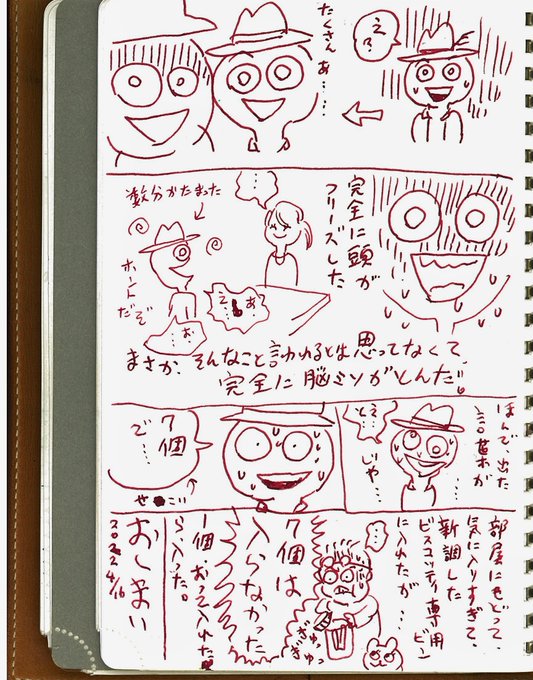 えっ
たくさんあ……
完全に頭が
フリーズした
…
数分かたまった
ホント
だぞ
あ
え…
…お
まさか、そんなこと言われるとは思ってなくて、
完全に脳ミソがとんだ!!
ほんで、出た
言葉が
え…
と…
じゃ…
7個
で…
せこい
部屋にもどって、
気に入りすぎて、
新調した
ビスコッティ専用ビン
に入れたが…
…
7個は
入らなかった
1個おって入れた
ら、入った。
おしまい
2022 4/16